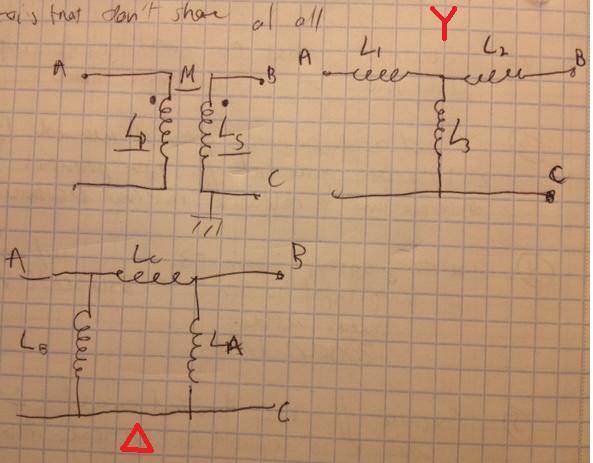 that don't share al all
Y
A M B
Lp Ls
C
A L₁ L₂ B
L₃
C
A Lc B
LB LA
C
Δ